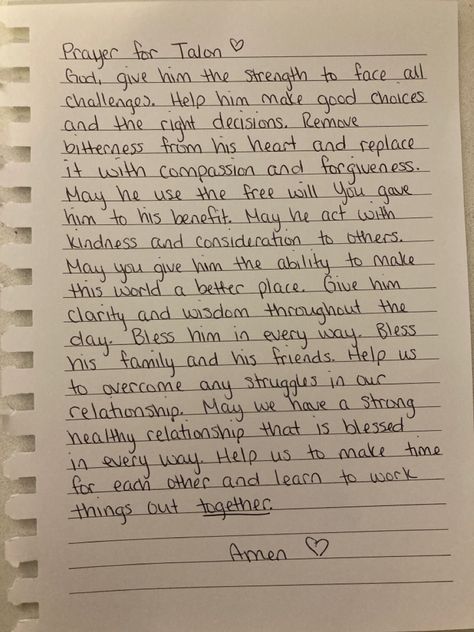 Prayer for Talon ♡
God, give him the strength to face all
challenges. Help him make good choices
and the right decisions. Remove
bitterness from his heart and replace
it with compassion and forgiveness.
May he use the free will You gave
him to his benefit. May he act with
kindness and consideration to others.
May you give him the ability to make
this world a better place. Give him
clarity and wisdom throughout the
day. Bless him in every way. Bless
his family and his friends. Help us
to overcome any struggles in our
relationship. May we have a strong
healthy relationship that is blessed
in every way. Help us to make time
for each other and learn to work
things out together.
Amen ♡